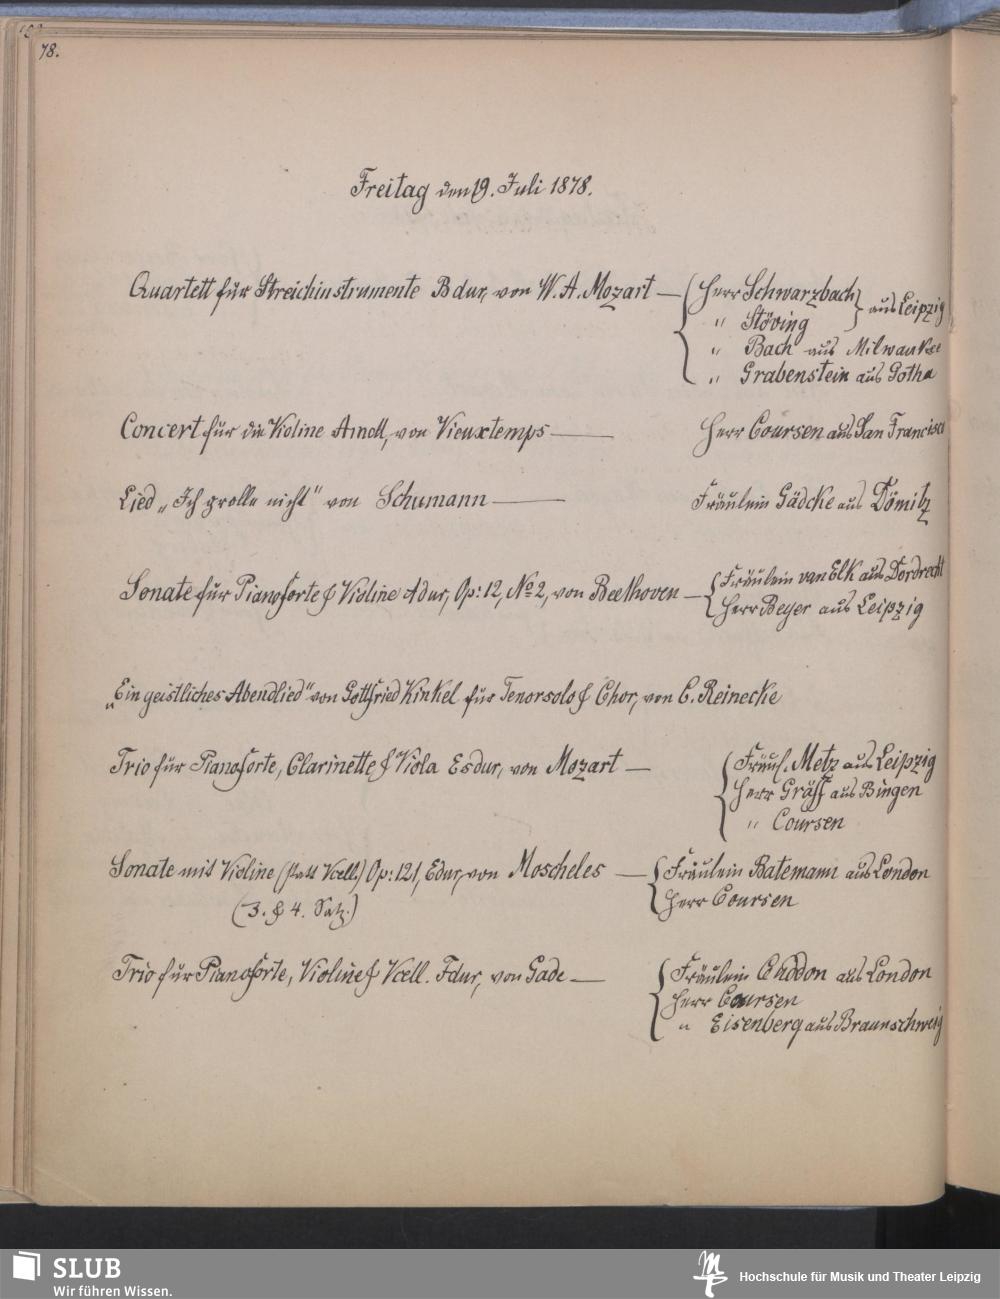 78.
Freitag den 19. Juli 1878.
Quartett für Streichinstrumente Bdur, von W. A. Mozart — Herr Schwarzbach
" Stöving
aus Leipzig
" Bach aus Milwaukee
" Grabenstein aus Gotha
Concert für die Violine Amoll, von Vieuxtemps — Herr Coursen aus San Francisco
Lied „Ich grolle nicht" von Schumann — Fräulein Gädcke aus Dömitz
Sonate für Pianoforte & Violine Adur, Op: 12, No 2, von Beethoven — Fräulein van Elk aus Dordrecht
Herr Beyer aus Leipzig
„Ein geistliches Abendlied" von Gottfried Kinkel für Tenorsolo & Chor, von C. Reinecke
Trio für Pianoforte, Clarinette & Viola Esdur, von Mozart — Fräul. Metz aus Leipzig
Herr Gräff aus Bingen
" Coursen
Sonate mit Violine (statt Vcell.) Op: 121, Edur, von Moscheles — Fräulein Batemann aus London
(3. & 4. Satz.) Herr Coursen
Trio für Pianoforte, Violine & Vcell. Fdur, von Gade — Fräulein aus London
Herr Coursen
" Eisenberg aus Braunschweig
SLUB
Wir führen Wissen.
Hochschule für Musik und Theater Leipzig